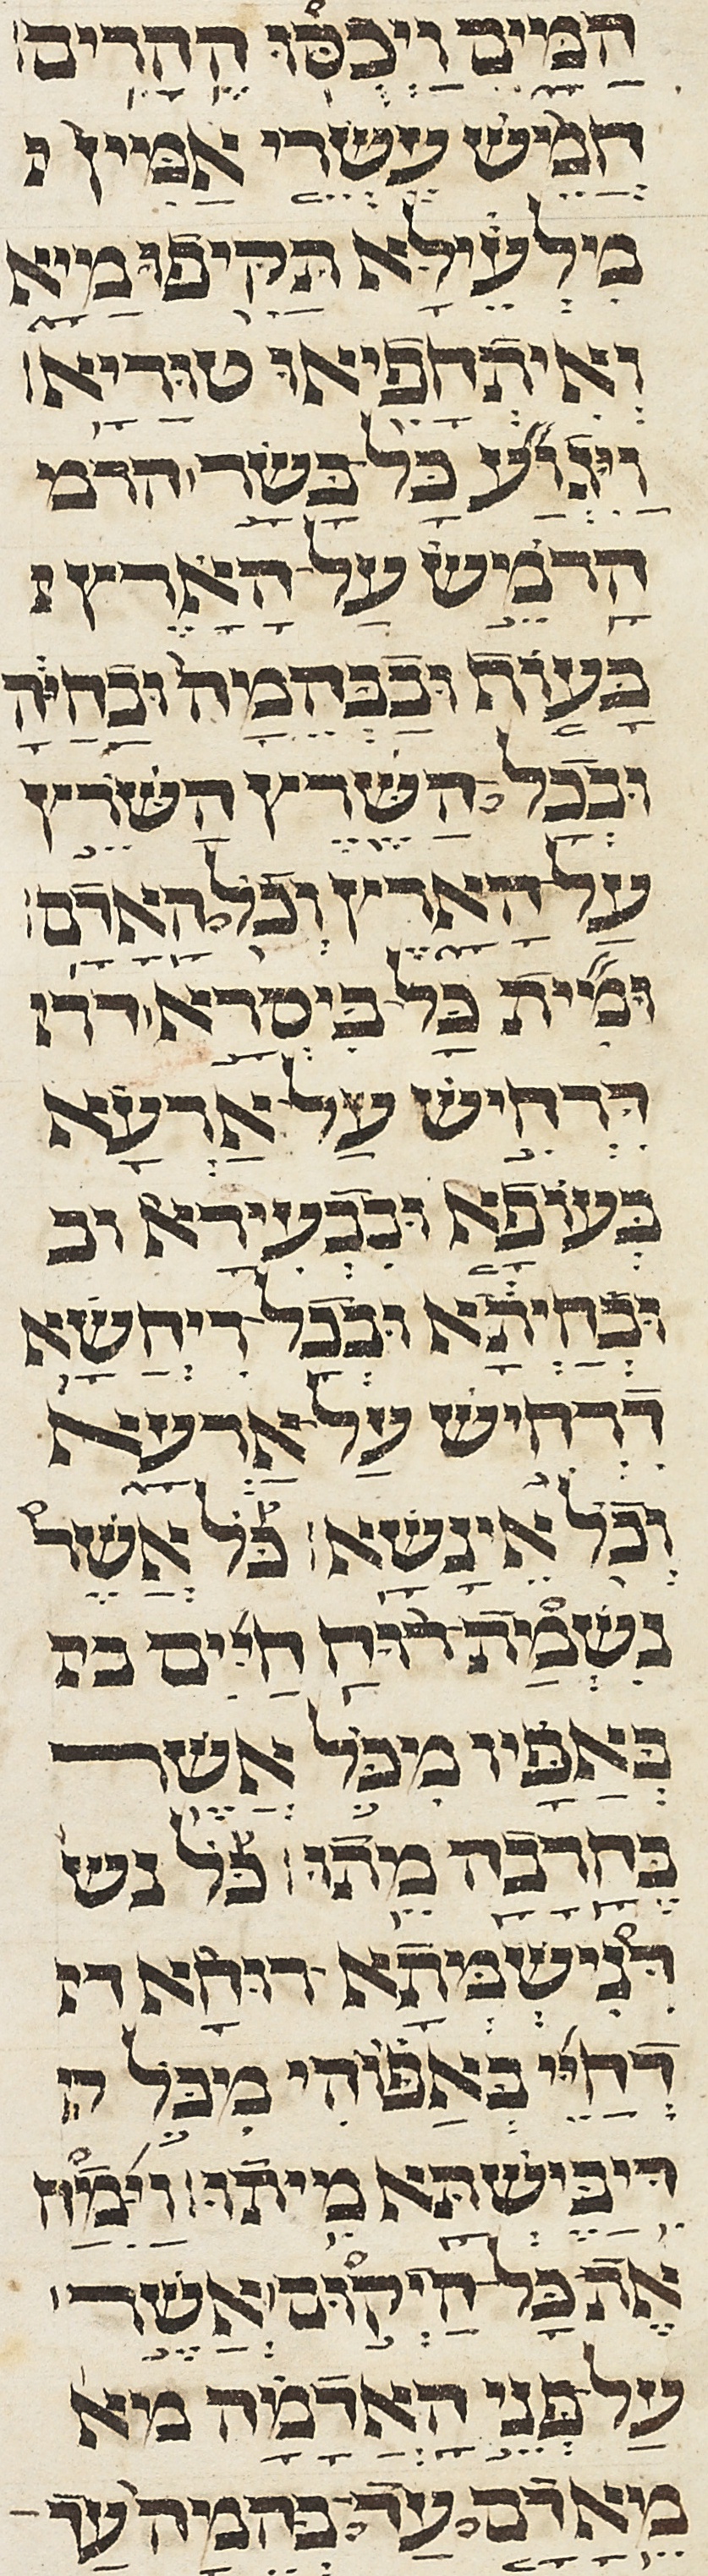 הַמָּיִם וַיְכֻסּוּ הֶהָרִים׃
חֲמֵישׁ עֶשְׂרֵי אַמִּין ׃
מִלְעֵילָא תַּקִיפוּ מַיָא
וְאִיתְחַפִיאוּ טוּרַיָא׃
וַיִּגְוַע כָּל בָּשָׂר הרמ
הָרֹמֵישׂ עַל הָאָרֶץ ׃
בָּעוֹף וּבַבְּהֵמָה וּבַחַיָּה
וּבְכָל הַשֶּׁרֶץ הַשֹּׁרֵץ
עַל הָאָרֶץ וְכֹל הָאָדָם׃
וּמִית כָּל בִּיסְרָא דר
דְּרָחֵישׁ עַל אַרְעָא
בְּעוֹפָא וּבִבְעִירָא וב
וּבְחַיְתָא וּבְכָל רִיחֲשָׁא
דְּרָחֵישׁ עַל אַרְעָא
וְכֹל אֵינָשָׁא׃ כֹּל אֲשֶׁר
נִשְׁמַת רוּחַ חַיִּים ב
בְּאַפָּיו מִכֹּל אֲשֶׁר
בֶּחָרָבָה מֵתוּ׃ כֹּל נש
דְּנִישְׁמְתָא רוּחָא ד
דְּחַיֵּי בְּאַפּוֹהִי מִכֹּל ד
דִיבְּיַבֶּשְׁתָּא מִיתוּ׃ וַיִּמַח
אֶת כָּל הַיְקוּם אֲשֶׁר
עַל פְּנֵי הָאֲדָמָה מא
מֵאָדָם עַד בְּהֵמָה עַד